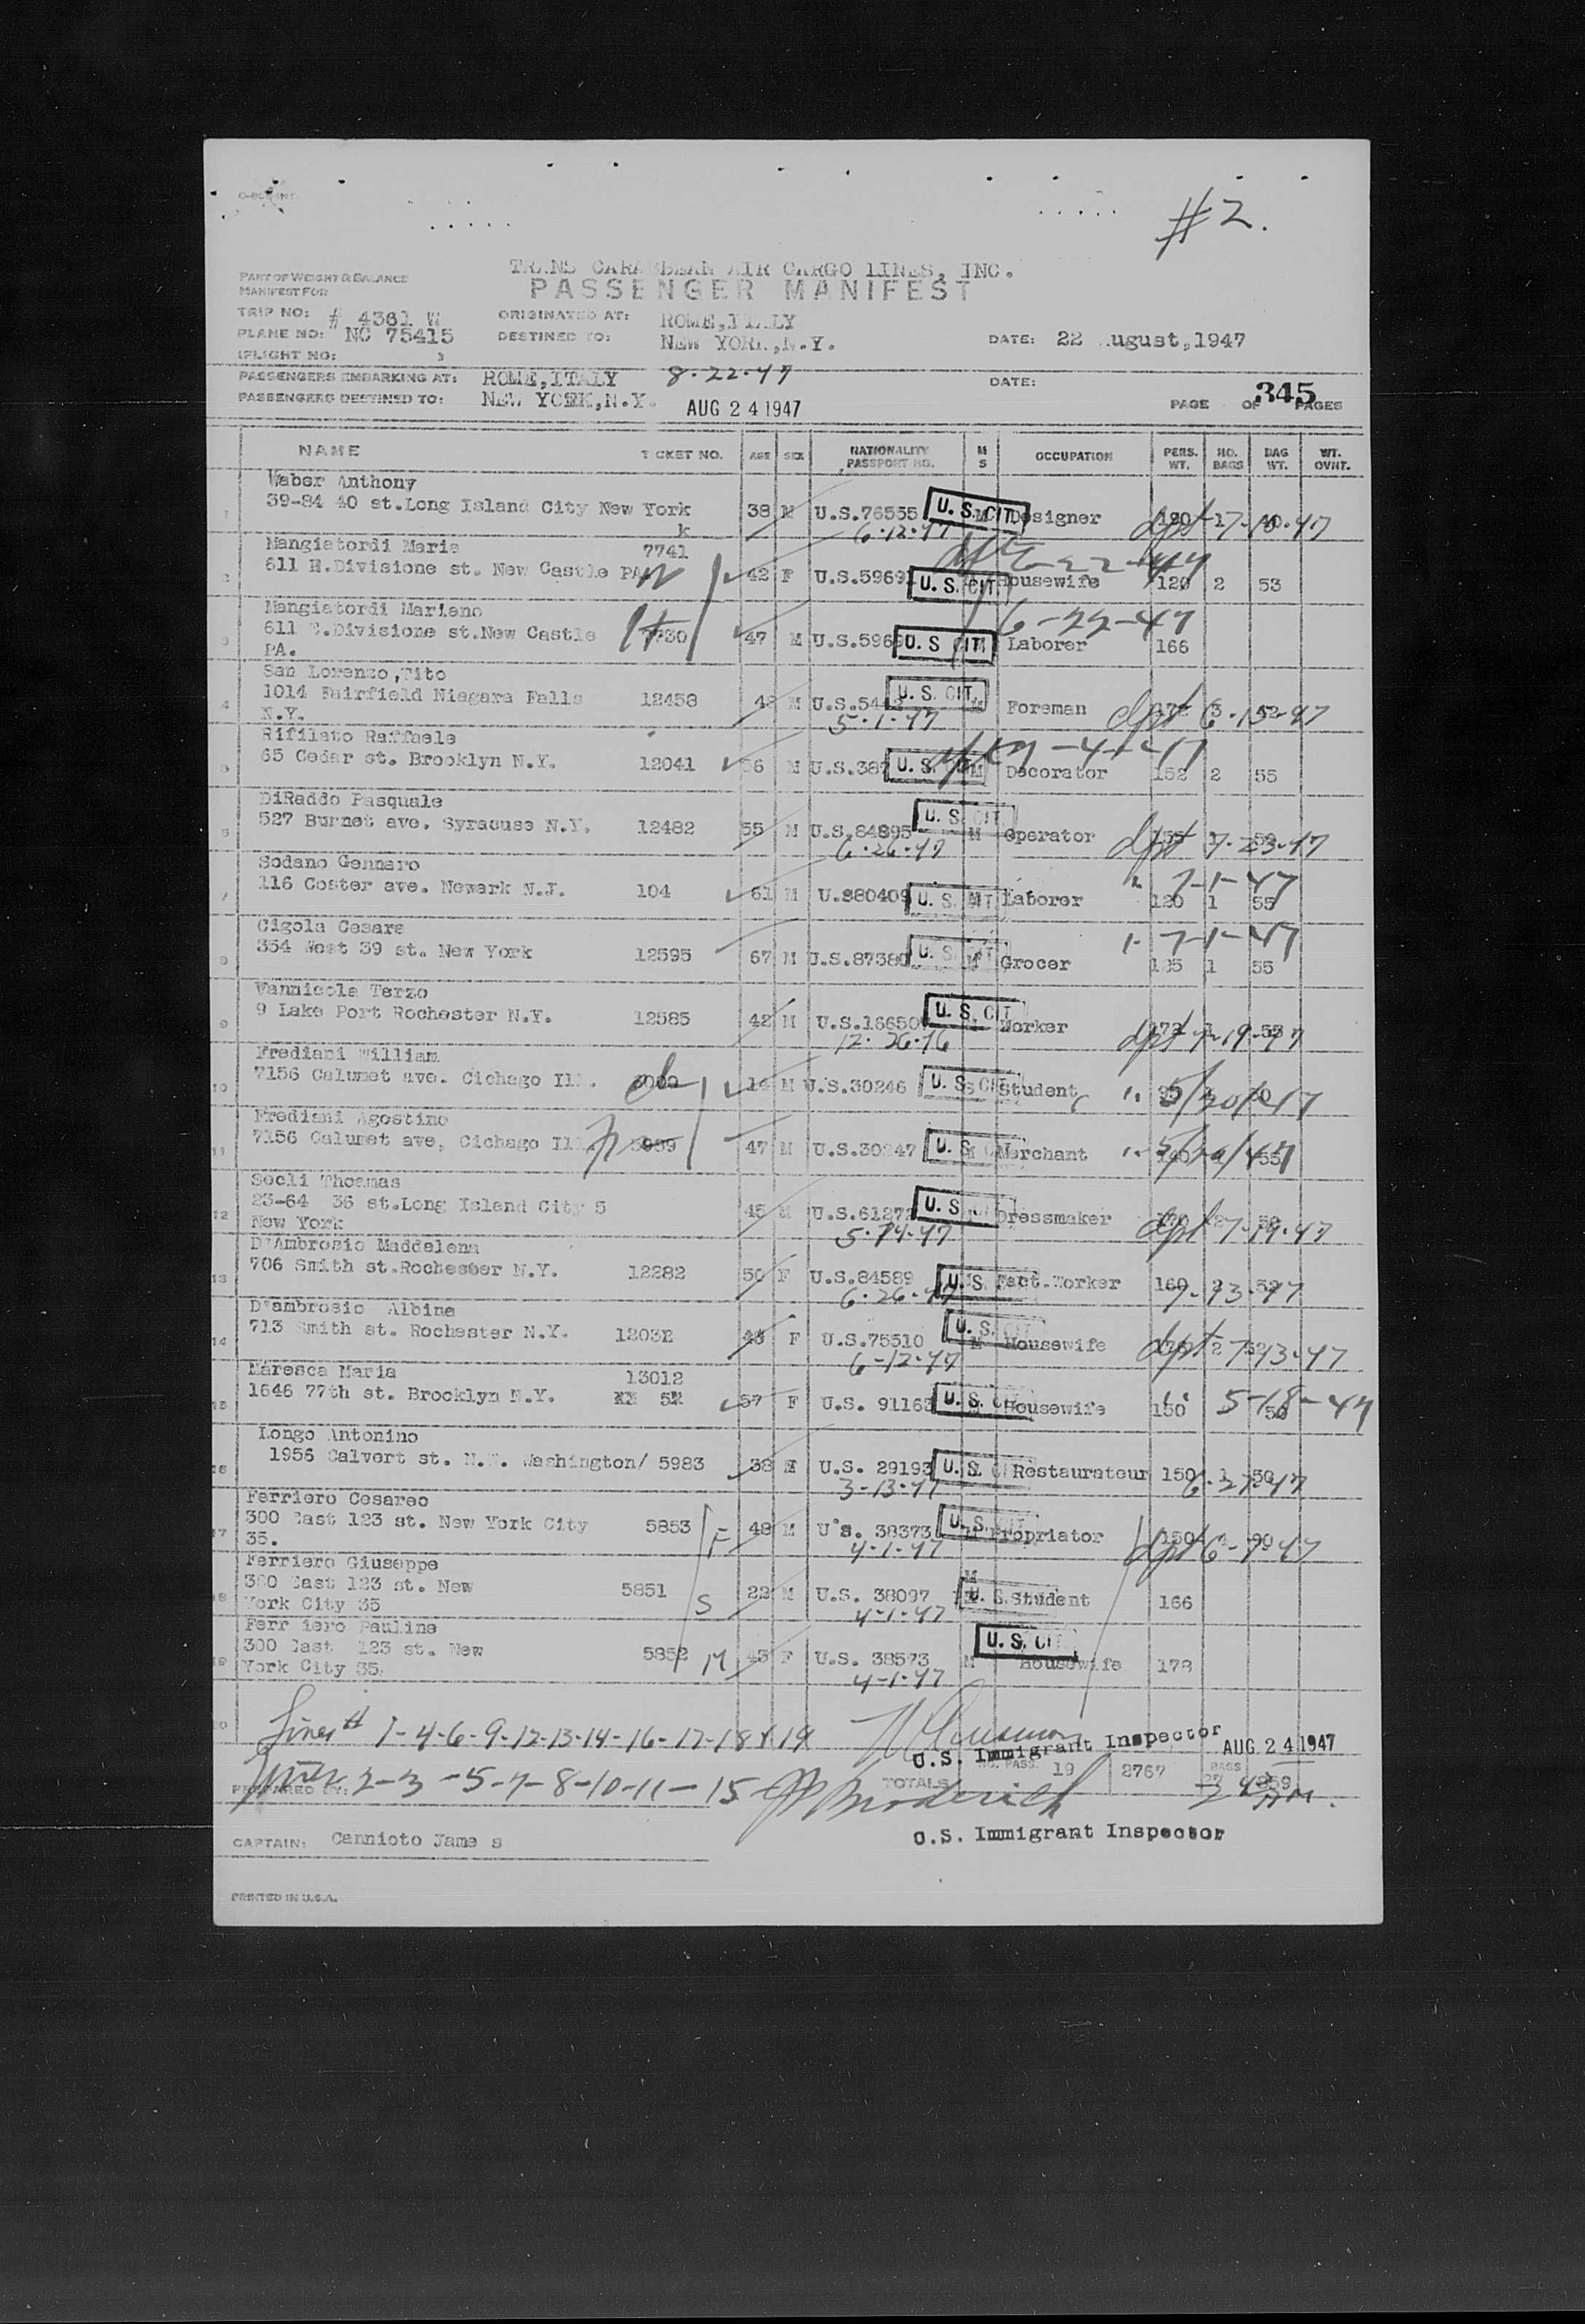 #2.
TRANS CARABBEAN AIR CARGO LINES, INC.
PASSENGER MANIFEST
PART OF WEIGHT & BALANCE
MANIFEST FOR
TRIP NO: # 4361 W ORIGINATED AT: ROME, ITALY
PLANE NO: NC 75415 DESTINED TO: NEW YORK, N.Y. DATE: 22 ugust, 1947
FLIGHT NO: 3
PASSENGERS EMBARKING AT: ROME, ITALY 8.22.47 DATE:
PASSENGERS DESTINED TO: NEW YORK, N.Y. AUG 24 1947 PAGE OF 345 PAGES
NAME TICKET NO. AGE SEX NATIONALITY PASSPORT NO. M S OCCUPATION PERS. WT. NO. BAGS BAG WT. WT. OVHT.
Waber Anthony
1 39-84 40 st. Long Island City New York 38 M U.S. 76555 U.S. CIT. M Designer dpt 7-10-47
k 6.12.47
Mangiatordi Maria 7741
2 611 E. Divisione st. New Castle PA W 42 F U.S. 5969 U.S. CIT. Housewife 120 2 53
Mangiatordi Mariano 6-22-47
3 611 E. Divisione st. New Castle 7730 47 M U.S. 5969 U.S. CIT. Laborer 166
PA.
San Lorenzo, Tito
4 1014 Fairfield Niagara Falls 12458 U.S. 544 U.S. CIT. Foreman dpt
N.Y. 5.1.47
Rifilato Raffaele
5 65 Cedar st. Brooklyn N.Y. 12041 56 M U.S. 387 U.S. M Decorator 152 2 55
DiRaddo Pasquale
6 527 Burnet ave. Syracuse N.Y. 12482 55 M U.S. 84895 U.S. CIT. M Operator dpt 7.23.47
6.26.47
Sodano Gennaro
7 116 Coster ave. Newark N.J. 104 61 M U.S80409 U.S. CIT. Laborer 120 1 55
7-1-47
Cigola Cesare
8 354 West 39 st. New York 12595 67 M U.S. 87380 U.S. CIT. M Grocer 135 1 55
7-1-47
Vannicola Terzo
9 9 Lake Port Rochester N.Y. 12585 42 M U.S. 16650 U.S. CIT. Worker dpt 7-19-47
12.26.46
Frediani William
10 7156 Calumet ave. Cichago Ill. ch 14 M U.S. 30246 U.S. CIT. S Student 5/20/47
Frediani Agostino
11 7156 Calumet ave, Cichago Ill 5989 47 M U.S. 30247 U.S. CIT. Merchant
Socli Thoamas
12 23-64 36 st. Long Island City 5 45 M U.S. 6127 U.S. Dressmaker dpt 7.19.47
New York 5.14.47
D'Ambrosio Maddalena
13 706 Smith st. Rochester N.Y. 12282 50 F U.S. 84589 U.S. Fact. Worker 160
6.26.47
D'ambrosio Albina
14 713 Smith st. Rochester N.Y. 12032 43 F U.S. 75510 U.S. CIT. M Housewife dpt
6-12-47
Maresca Maria 13012
15 1646 77th st. Brooklyn N.Y. 57 F U.S. 9116 U.S. CIT. Housewife 150 50 5-18-47
Longo Antonino
16 1956 Calvert st. N.W. Washington/ 5983 38 M U.S. 29193 U.S. Restaurateur 150 1 50
3-13-47 6.27.47
Ferriero Cesareo
17 300 East 123 st. New York City 5853 F 48 M U's. 38373 U.S. CIT. Propriator 150 dpt
35. 4.1.47
Ferriero Giuseppe
18 300 East 123 st. New 5851 S 22 M U.S. 38097 U.S. Student 166
York City 35 4-1-47
Ferr iero Pauline
19 300 East 123 st. New 5852 M 43 F U.S. 38573 U.S. CIT. M Housewife 178
York City 35. 4-1-47
20 Lines # 1-4-6-9-12-13-14-16-17-18 & 19
U.S. Immigrant Inspector AUG 24 1947
Lines 2-3-5-7-8-10-11-15 Broderick
PREPARED BY: TOTALS NO. PASS. 19 2767 BAGS
CAPTAIN: Cannioto Jame s U.S. Immigrant Inspector
PRINTED IN U.S.A.